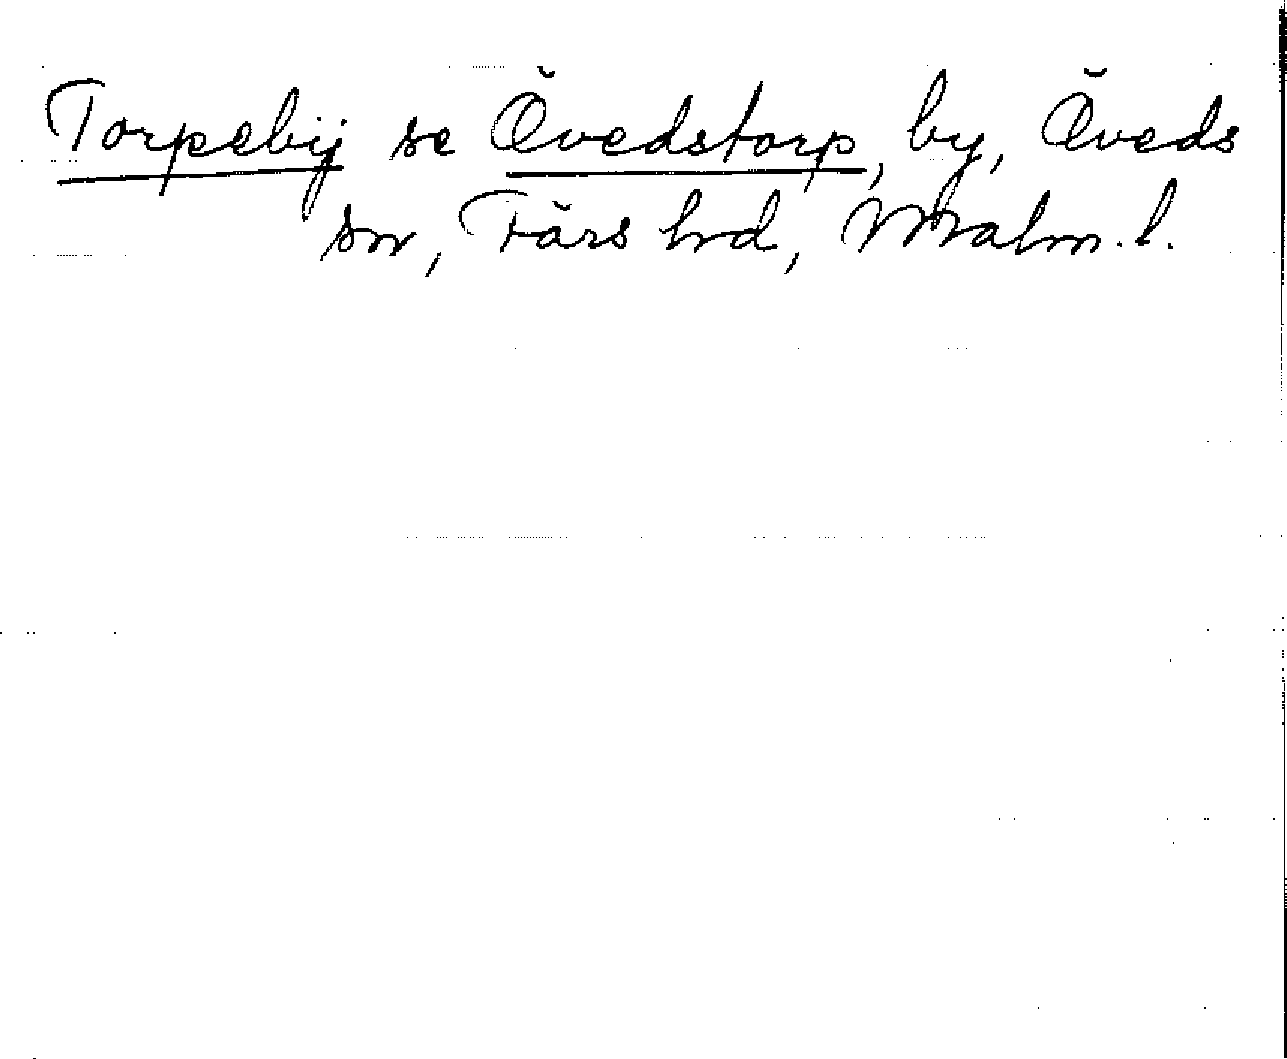 Torpebÿ se Övedstorp, by, Öveds
sn, Färs hd, Malm. l.